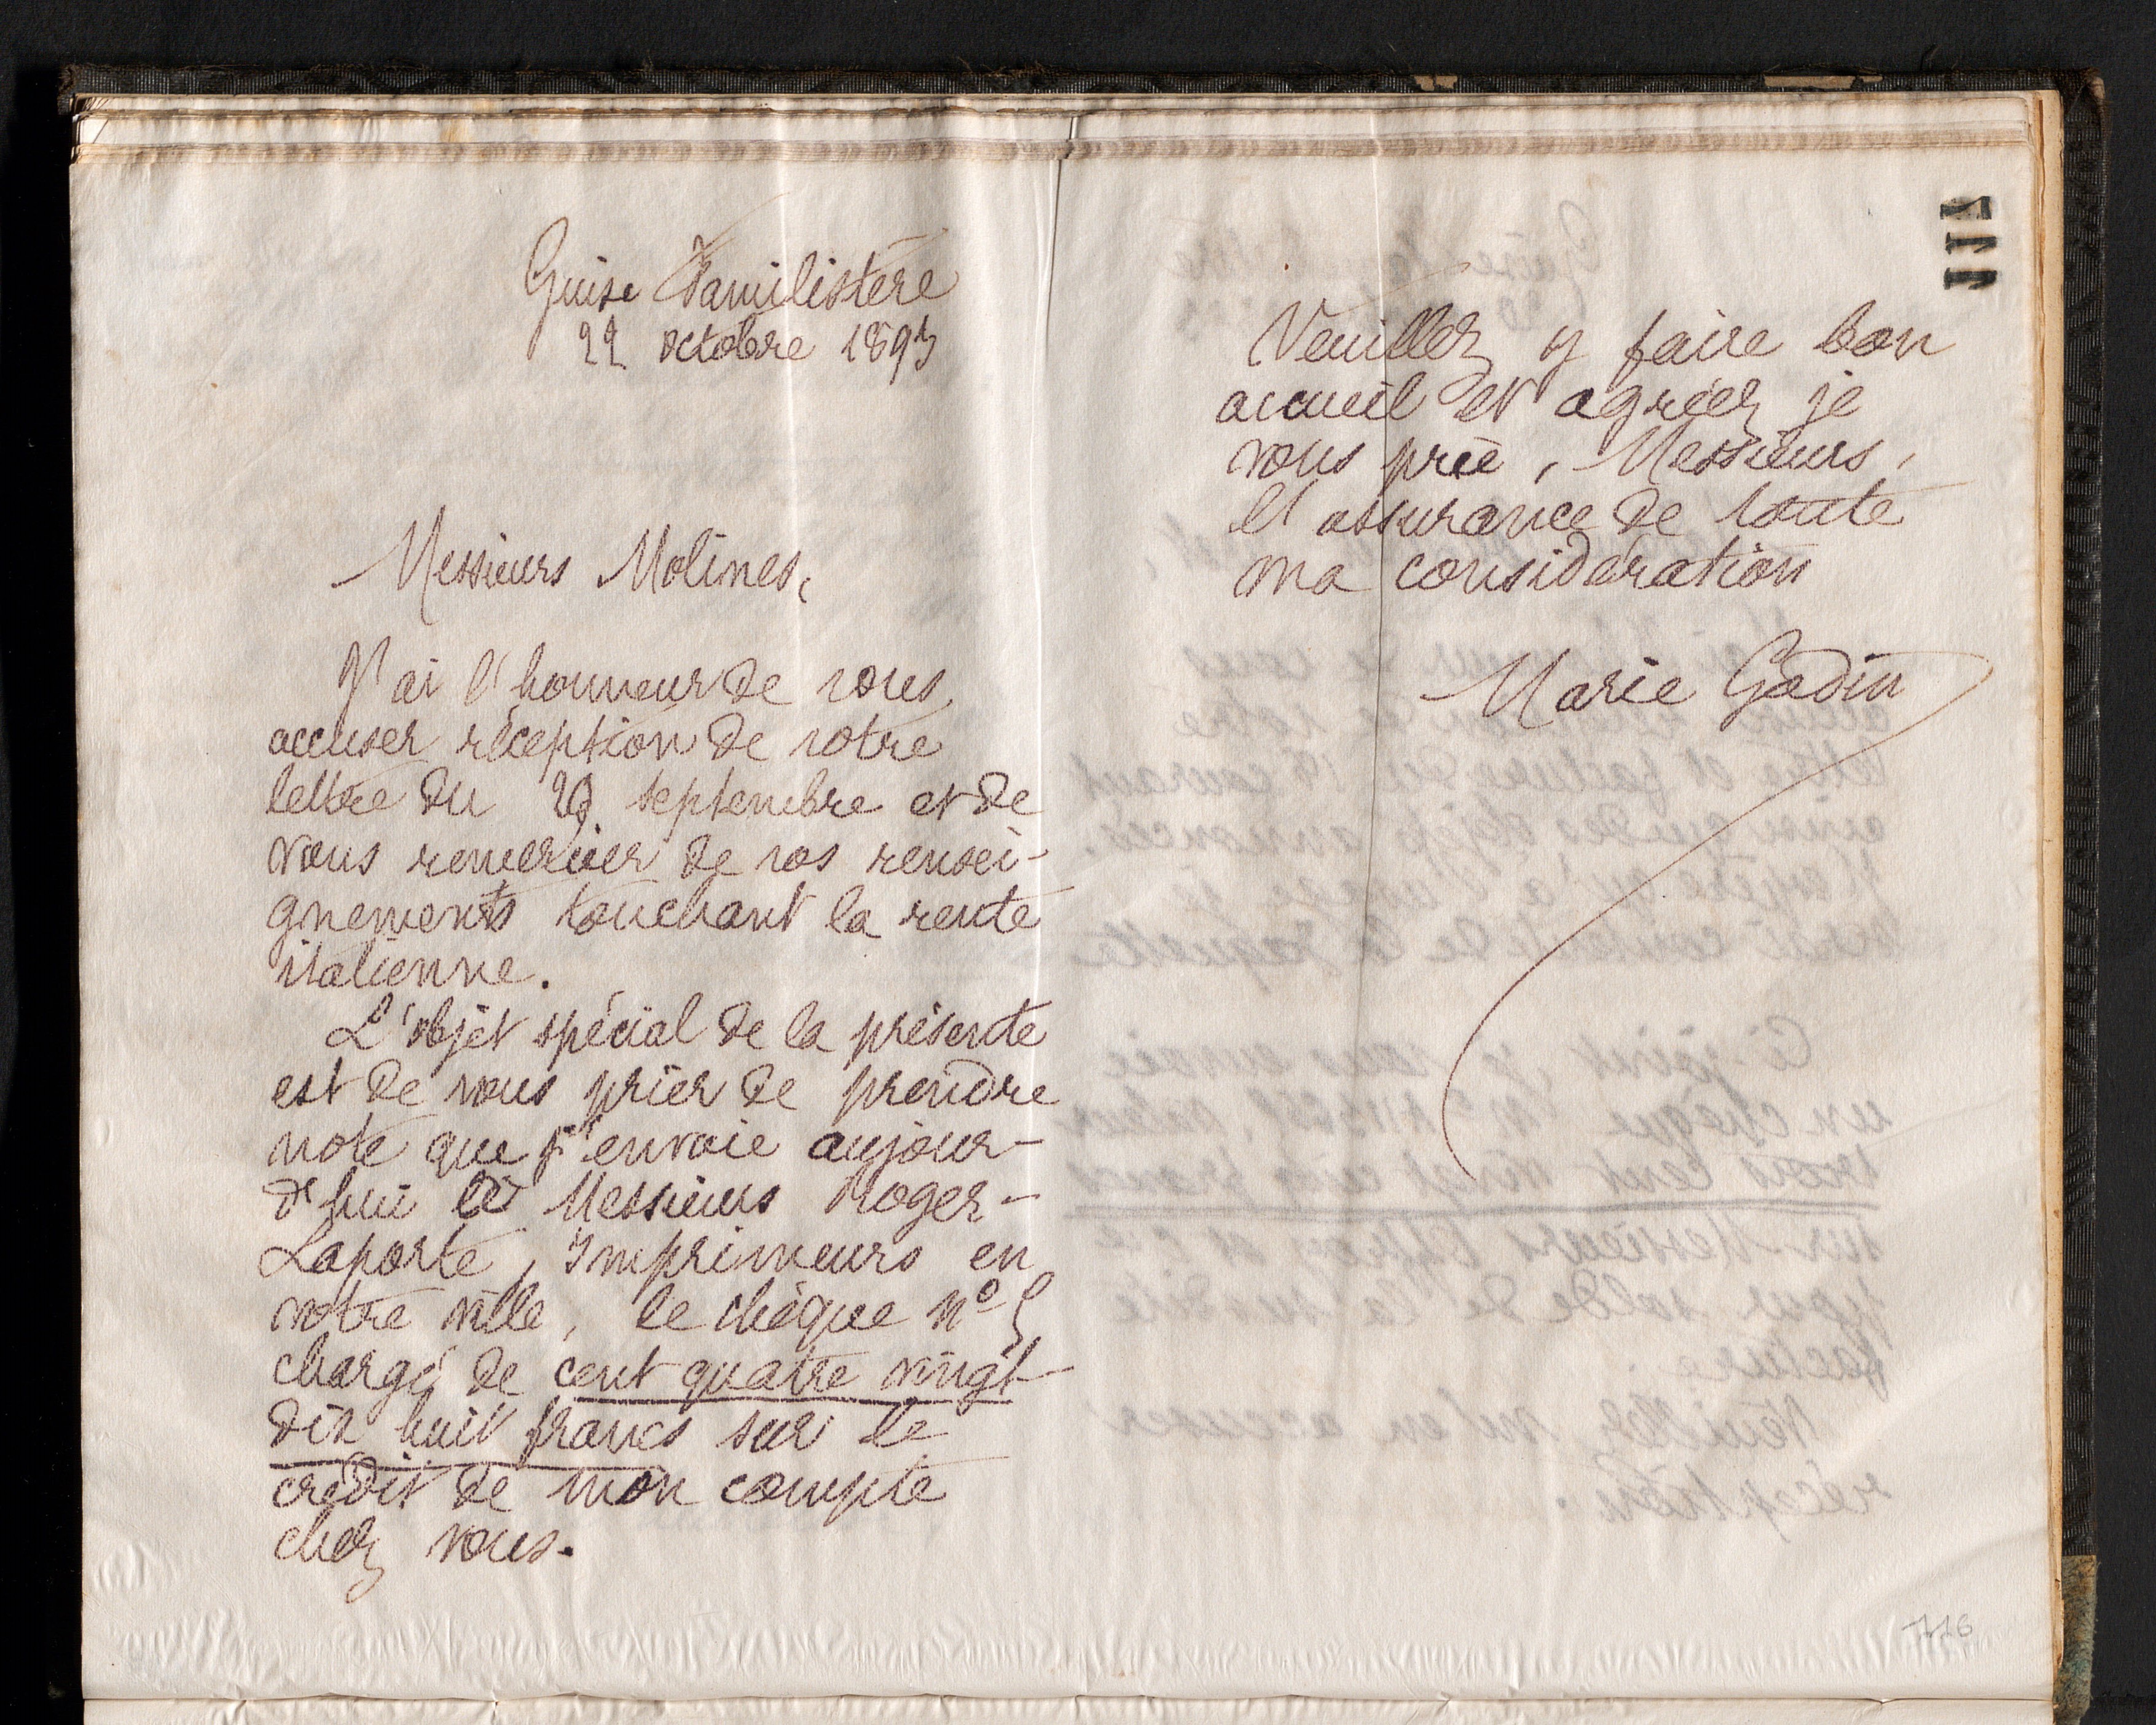 Guise Familistère
22 octobre 1893
Messieurs Molines,
J'ai l'honneur de vous
accuser réception de votre
lettre du 29 septembre et de
vous remercier de vos rensei-
gnements touchant la rente
italienne.
L'objet spécial de la présente
est de vous prier de prendre
note que j'envoie aujour-
d'hui à Messieurs Roger-
Laporte, Imprimeurs en
votre ville, le chèque nº 5
chargé de cent quatre vingt-
dix huit francs sur le
crédit de mon compte
chez vous.
Veuillez y faire bon
accueil et agréer, je
vous prie, Messieurs,
l'assurance de toute
ma considération
Marie Godin
116